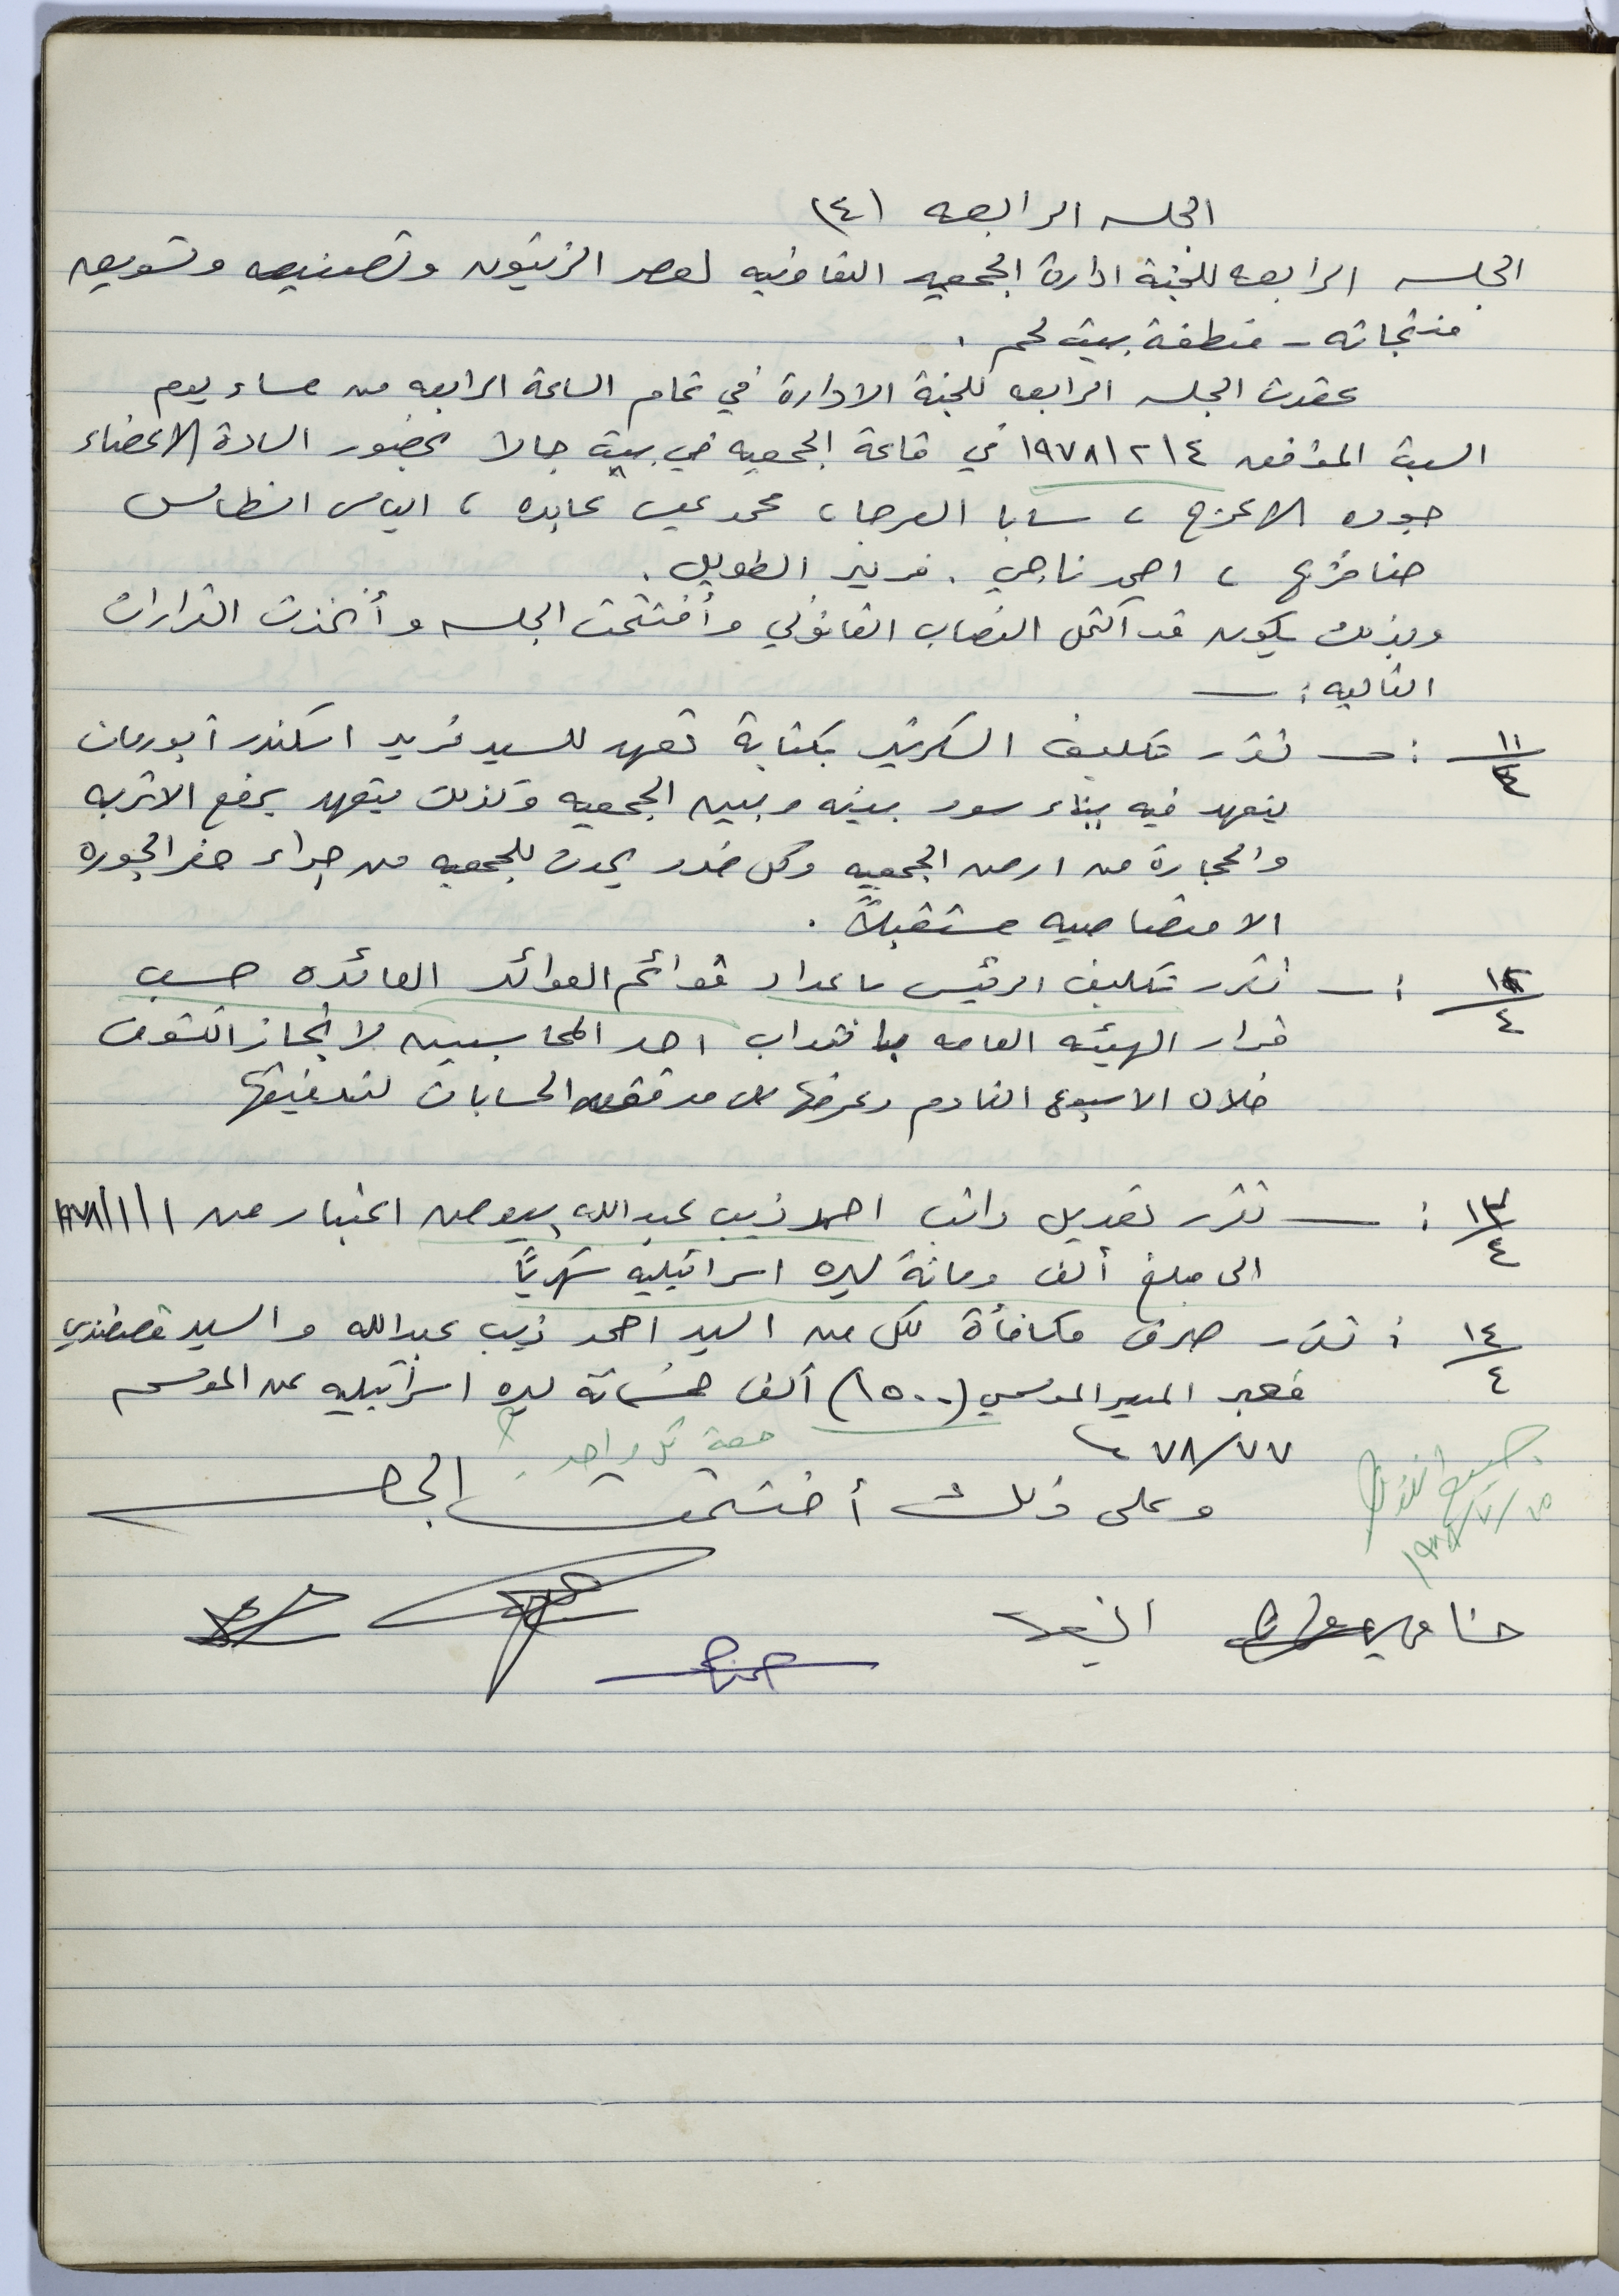 الجلسه الرابعه (٤)
الجلسه الرابعه للجنة ادارة الجمعيه التعاونيه لعصر الزيتون وتصنيعه وتسويق
منتجاته - منطقة بيت لحم .
عقدت الجلسه الرابعه للجنة الادارة في تمام الساعة الرابعه من مساء يوم
السبت الموافق ١٩٧٨/٢/٤ في قاعة الجمعيه في بيت جالا بحضور السادة الاعضاء
جوده الاعرج ، سابا العرجا ، محمد عيسى عابده ، الياس
حنا ، احمد ناجي . فريد الطويل .
وبذلك يكون قد اكتمل النصاب القانوني وأفتتحت الجلسه وأتخذت القرارات
التاليه : ـ
١١/٤ : ـ تقرر تكليف السكرتير بكتابة تعهد للسيد فريد اسكندر ابورمان
يتعهد فيه ببناء سور بينه وبين الجمعيه وكذلك يتعهد برفع الاتربه
والحجارة من ارض الجمعيه وكل ضرر يحدث للجمعيه من جراء حفر الجوره
الامتصاصيه مستقبلاً .
١٢/٤ : ـ تقرر تكليف الرئيس باعداد قوائم العوائد العائده حسب
قرار الهيئه العامه بانتداب احد المحاسبين لانجاز الكشوف
خلال الاسبوع القادم وعرضها على مدقق الحسابات لتدقيقها
١٣/٤ : ـ تقرر تعديل راتب احمد ذيب عبدالله اعتبار من ١٩٧٨/١/١
الى مبلغ ألف ومائة ليره اسرائيليه شهرياً
١٤/٤ : تقرر صرف مكافأة لكل من السيد احمد ذيب عبدالله والسيد قسطندي
المدير الموسمي (١٥٠٠) ألف خمسمائة ليره اسرائيليه عن الموسم
٧٨/٧٧
حصة كل واحد .
وعلى ذلك أختتمت الجلسه
حنا